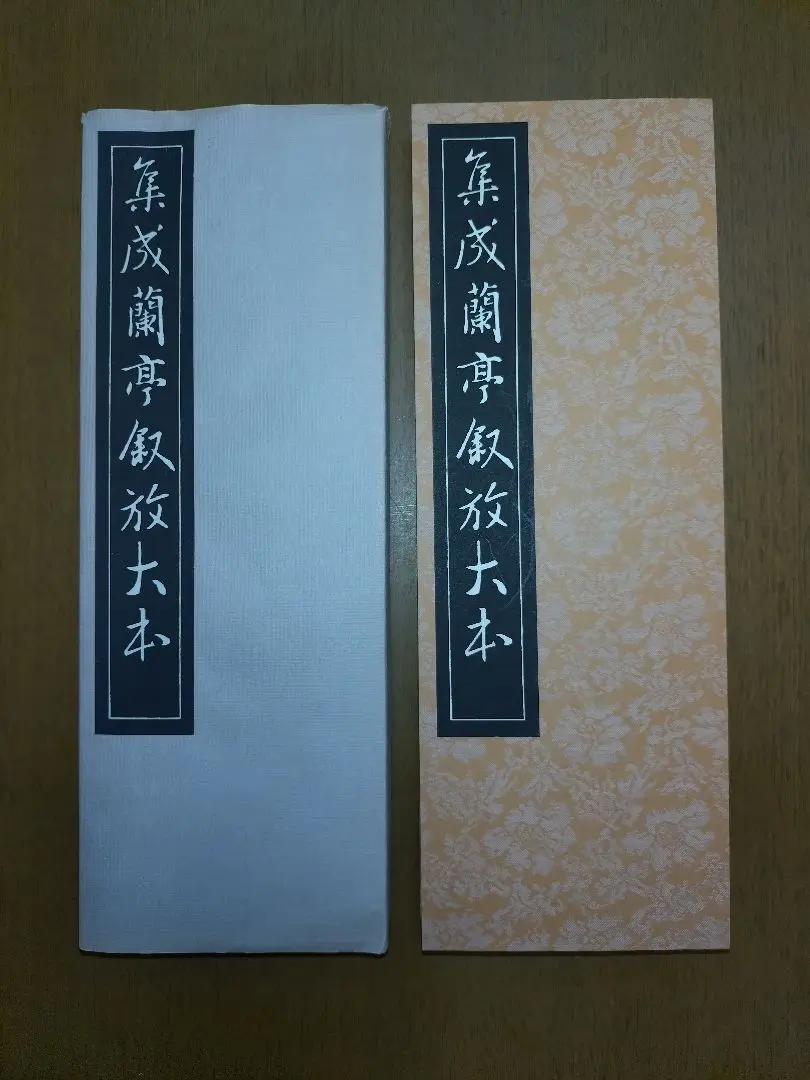 集成蘭亭叙放大本
集成蘭亭叙放大本